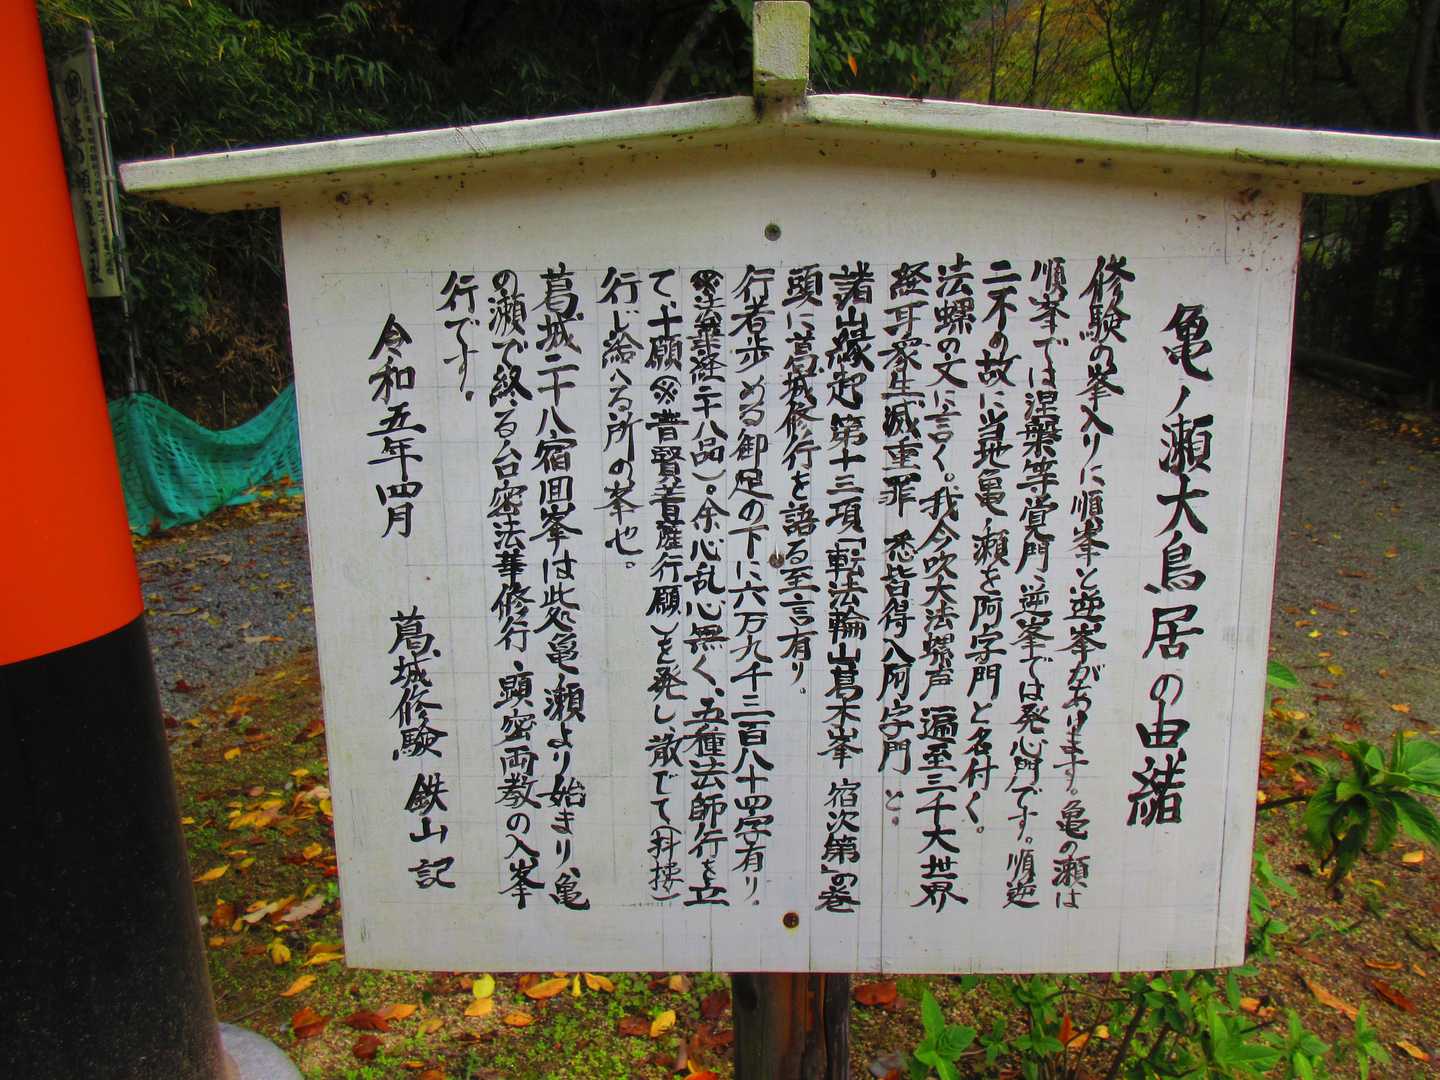 亀ノ瀬大鳥居の由緒
修験の峯入りに順峯と逆峯があります。亀の瀬は
順峯では涅槃等覚門、逆峯では発心門です。順逆
二不の故に当地亀ノ瀬を阿字門と名付く。
法螺の文に言く。我今吹大法螺声 遍至三千大世界
経耳衆生滅重罪 悉皆得入阿字門 と。
諸山縁起 第十三項「転法輪山葛木峯 宿次第」の巻
頭に葛城修行を語る至言有り。
行者歩める御足の下に六万九千三百八十四字有り。
(※法華経二十八品)。余心乱心無く、五種法師行を立
て、十願(※普賢菩薩行願)を発し散でて(抖擻)
行じ給へる所の峯也。
葛城二十八宿回峯は此処亀ノ瀬より始まり、亀
の瀬で終る台密法華修行、顕密両教の入峯
行です。
令和五年四月 葛城修験 鉄山 記